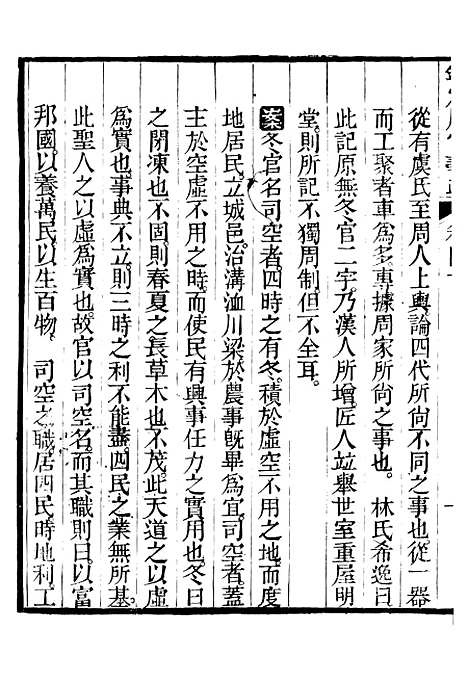 從有虞氏至周人上輿論四代所尚不同之事也從一器
而工聚者車爲多專據周家所尚之事也 林氏希逸曰
此記原無冬官二字乃漢人所增匠人竝舉世室重屋明
堂則所記不獨周制但不全耳
案冬官名司空者四時之有冬積於虛空不用之地而度
地居民立城邑治溝洫川梁於農事旣畢爲宜司空者蓋
主於空虛不用之時而使民有興事任力之實用也冬日
之閉凍也不固則春夏之長草木也不茂此天道之以虛
爲實也事典不立則三時之利不能盡四民之業無所基
此聖人之以虛爲實也故官以司空名而其職則曰以富
邦國以養萬民以生百物 司空之職居四民時地利工